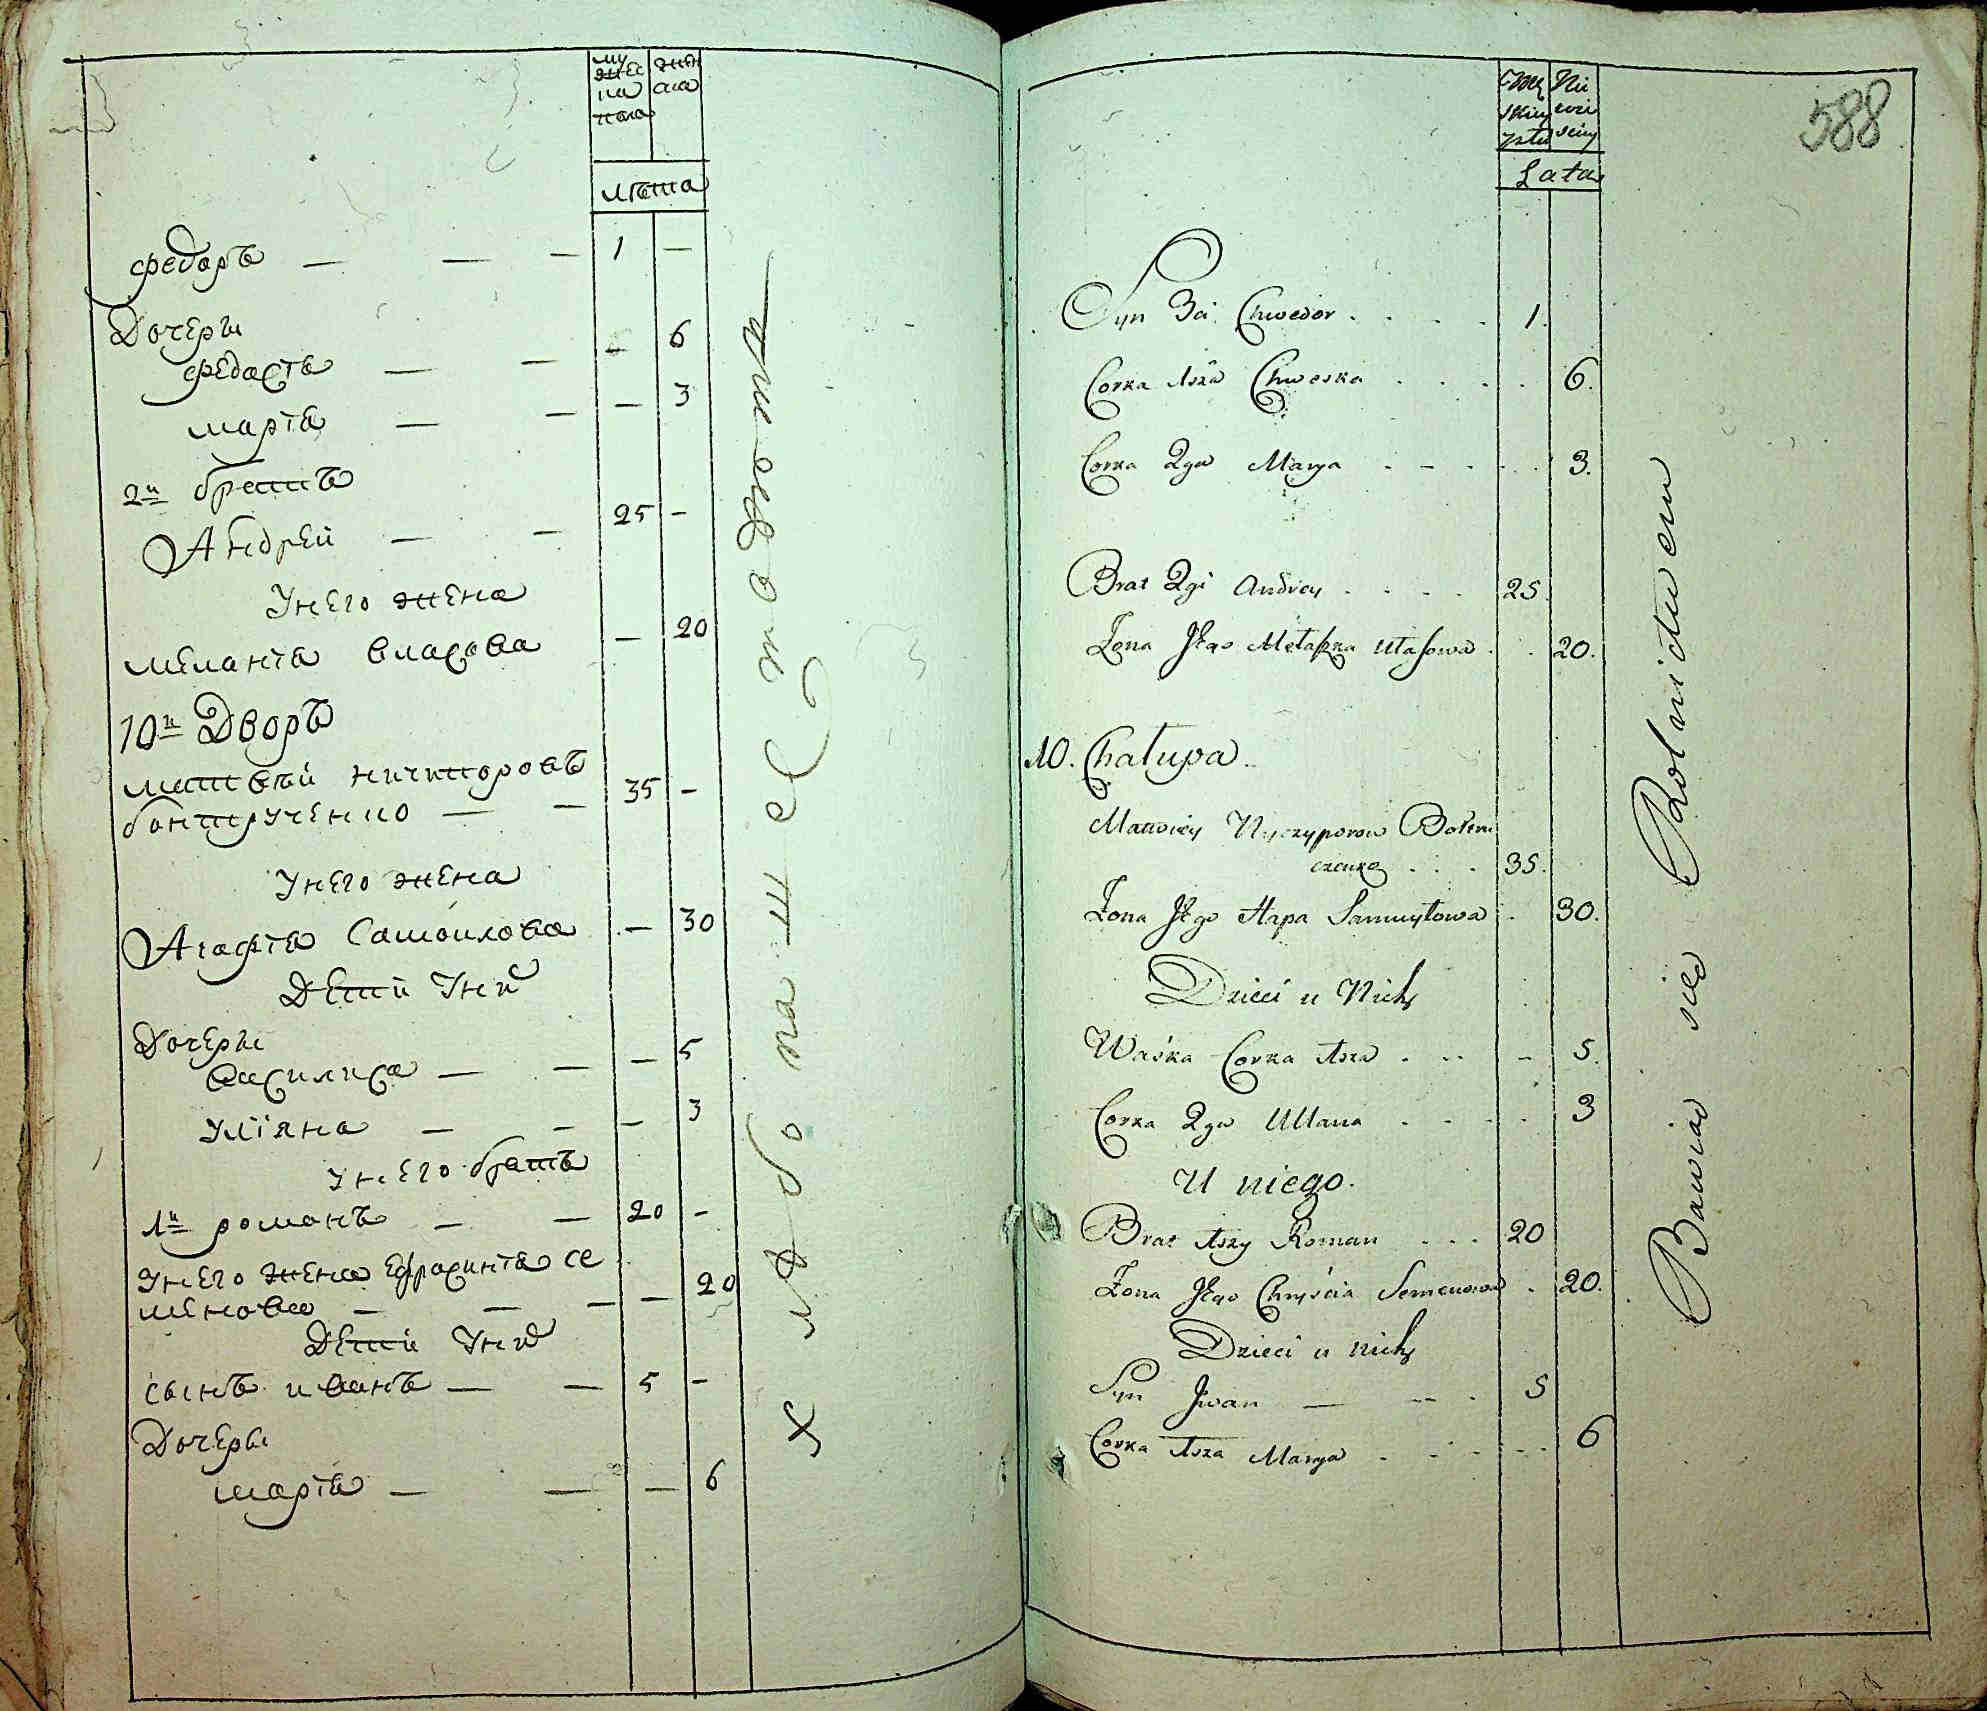 му
жес
ка
пола
жен
ска
лѣта
федоръ — — — 1 —
Дочеры
федося — — — 6
марія — — — 3
2й братъ
Андрей — — 25 —
Унего жена
меланія власова — 20
10й Дворъ
матвѣй ничипоровъ
бонтрученко — — 35 —
Унего жена
Агафія Самойлова — 30
Дети Уних
Дочеры
василиса — — — 5
уліяна — — — 3
унего братъ
1й романъ — — 20 —
унего жена Ефросинія се
менова — — — — 20
Дети Уних
сынъ иванъ — — 5 —
Дочеры
марія — — — 6
хлѣбопашествомъ
588
Męskiey płci
Niewiesciey
Lata
Syn 3ci Chwedor . . . . 1.
Corka 1sza Chwoska . . . . 6.
Corka 2ga Marya . . . . 3.
Brat 2gi Andrey . . . . 25.
Żona Jego Małaszka Ułasowa . . 20.
10. Chałupa.
Matwiey Nyczyporow Botrn
czenko . . . 35.
Żona Jego Hapa Samuyłowa . 30.
Dzieci u Nich
Waśka Corka 1sza . . . - 5.
Corka 2ga Ullana . . . . 3
U niego.
Brat 1szy Roman . . . 20
Żona Jego Chryścia Semenowa . 20.
Dzieci u nich
Syn Jwan — . . 5
Corka 1sza Marya . . . . 6
Bawiać sieę Rolnictwem